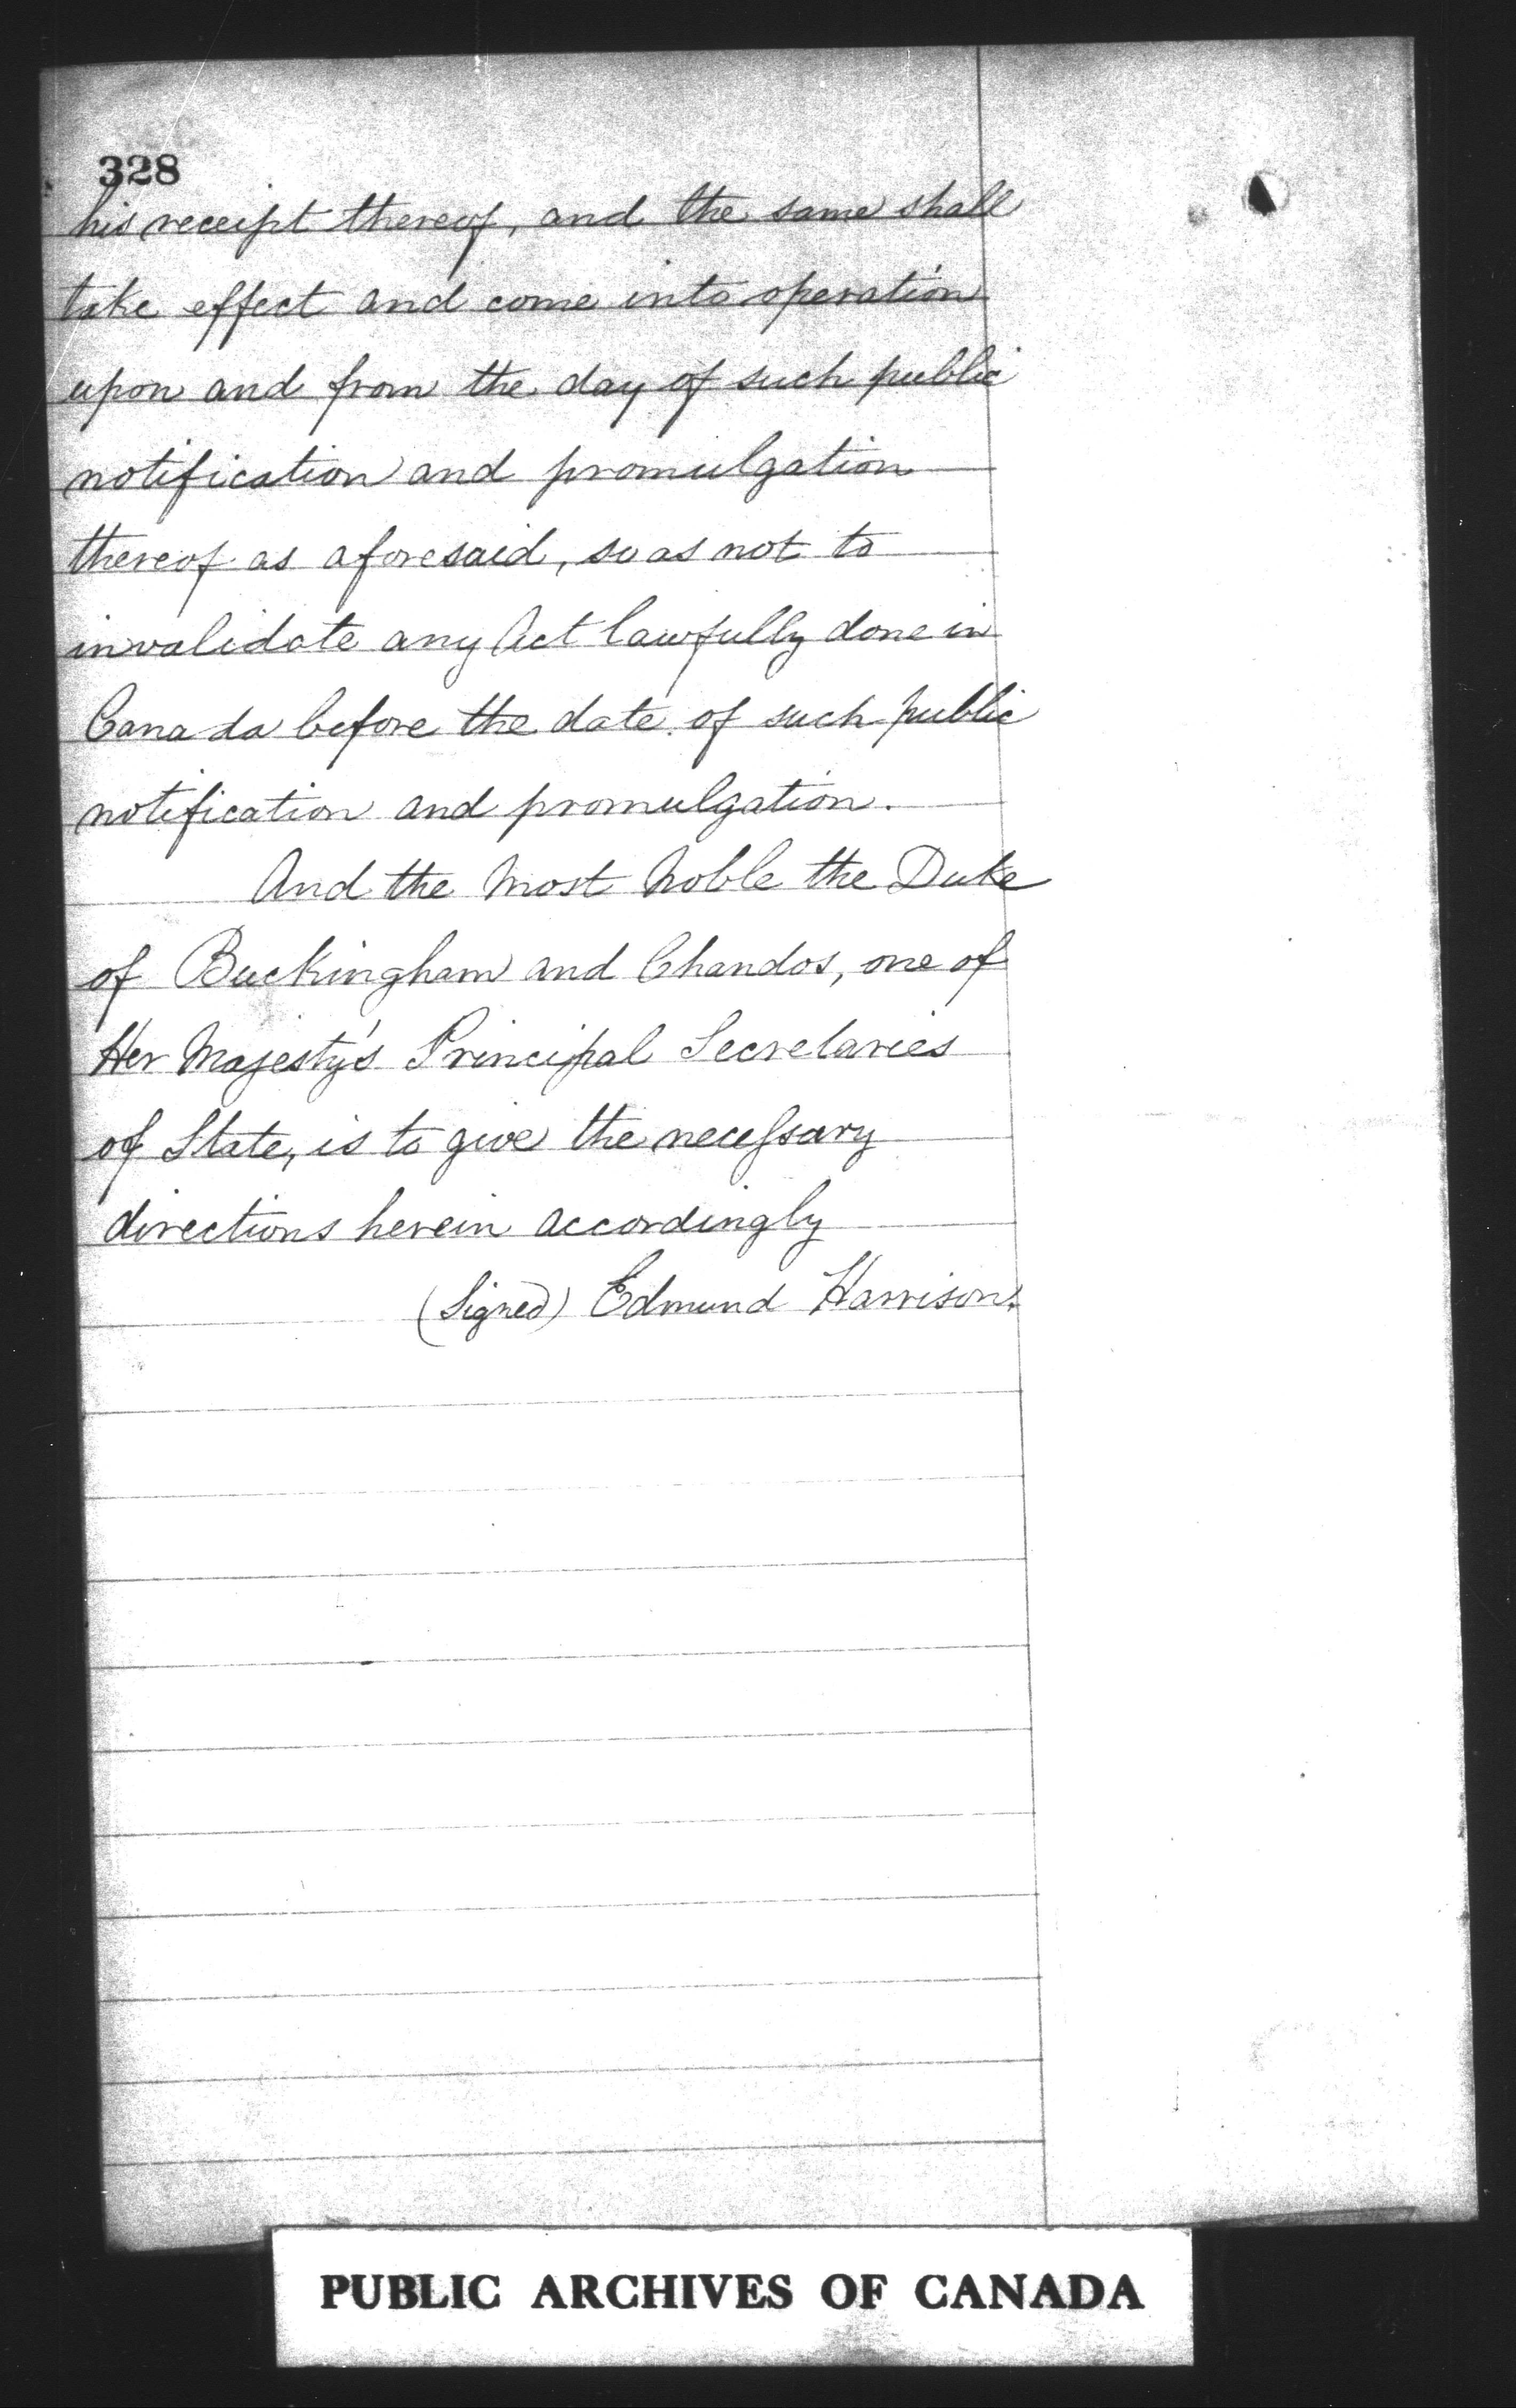 328
his receipt thereof, and the same shall
take effect and come into operation
upon and from the day of such public
notification and promulgation
thereof as aforesaid, so as not to
invalidate any Act lawfully done in
Canada before the date of such public
notification and promulgation.
And the Most Noble the Duke
of Buckingham and Chandos, one of
Her Majesty's Principal Secretaries
of State, is to give the necessary
directions herein accordingly
(Signed) Edmund Harrison.
PUBLIC ARCHIVES OF CANADA